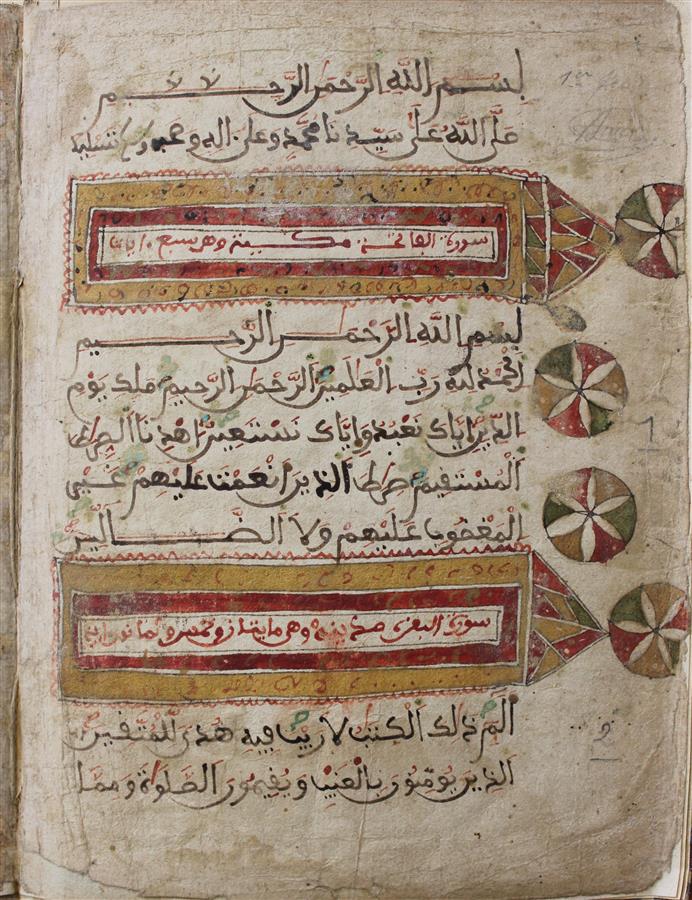 بسم الله الرحمن الرحيم
صلى الله على سيدنا محمد وعلى اله وصحبه وسلم تسليما
سورة الفاتحة مكية وهي سبع ايات
بسم الله الرحمن الرحيم
الحمد لله رب العلمين الرحمن الرحيم ملك يوم
الدين اياك نعبد واياك نستعين اهدنا الصراط
المستقيم صراط الذين انعمت عليهم غير
المغضوب عليهم ولا الضالين
سورة البقرة مدنية وهي مايتان وخمس وثمانون اية
الم ذلك الكتب لا ريب فيه هدى للمتقين
الذين يومنون بالغيب ويقيمون الصلوة ومما
1
2